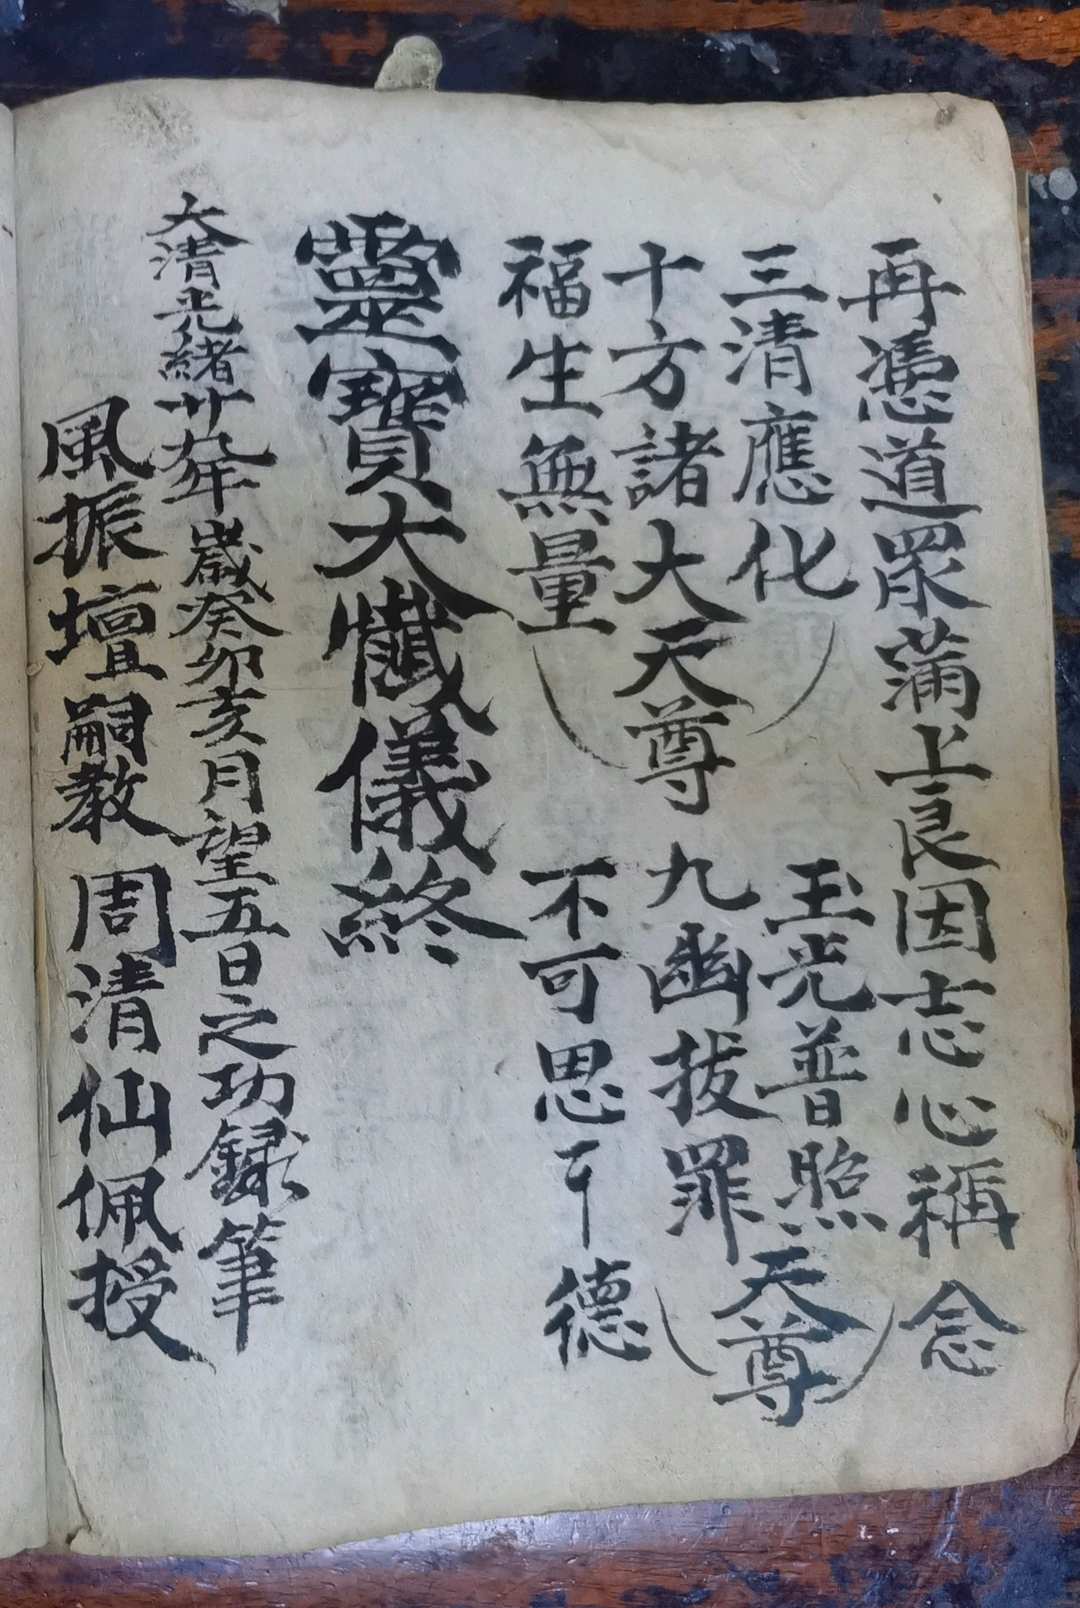 再憑道眾滿上良因志心稱念
三清應化　玉光普照
十方諸大天尊九幽拔罪天尊
福生無量　不可思　德
靈寶大懺儀終
大清光緒廿九年歲癸卯亥月望五日之功錄筆
風振壇嗣教周清仙佩授